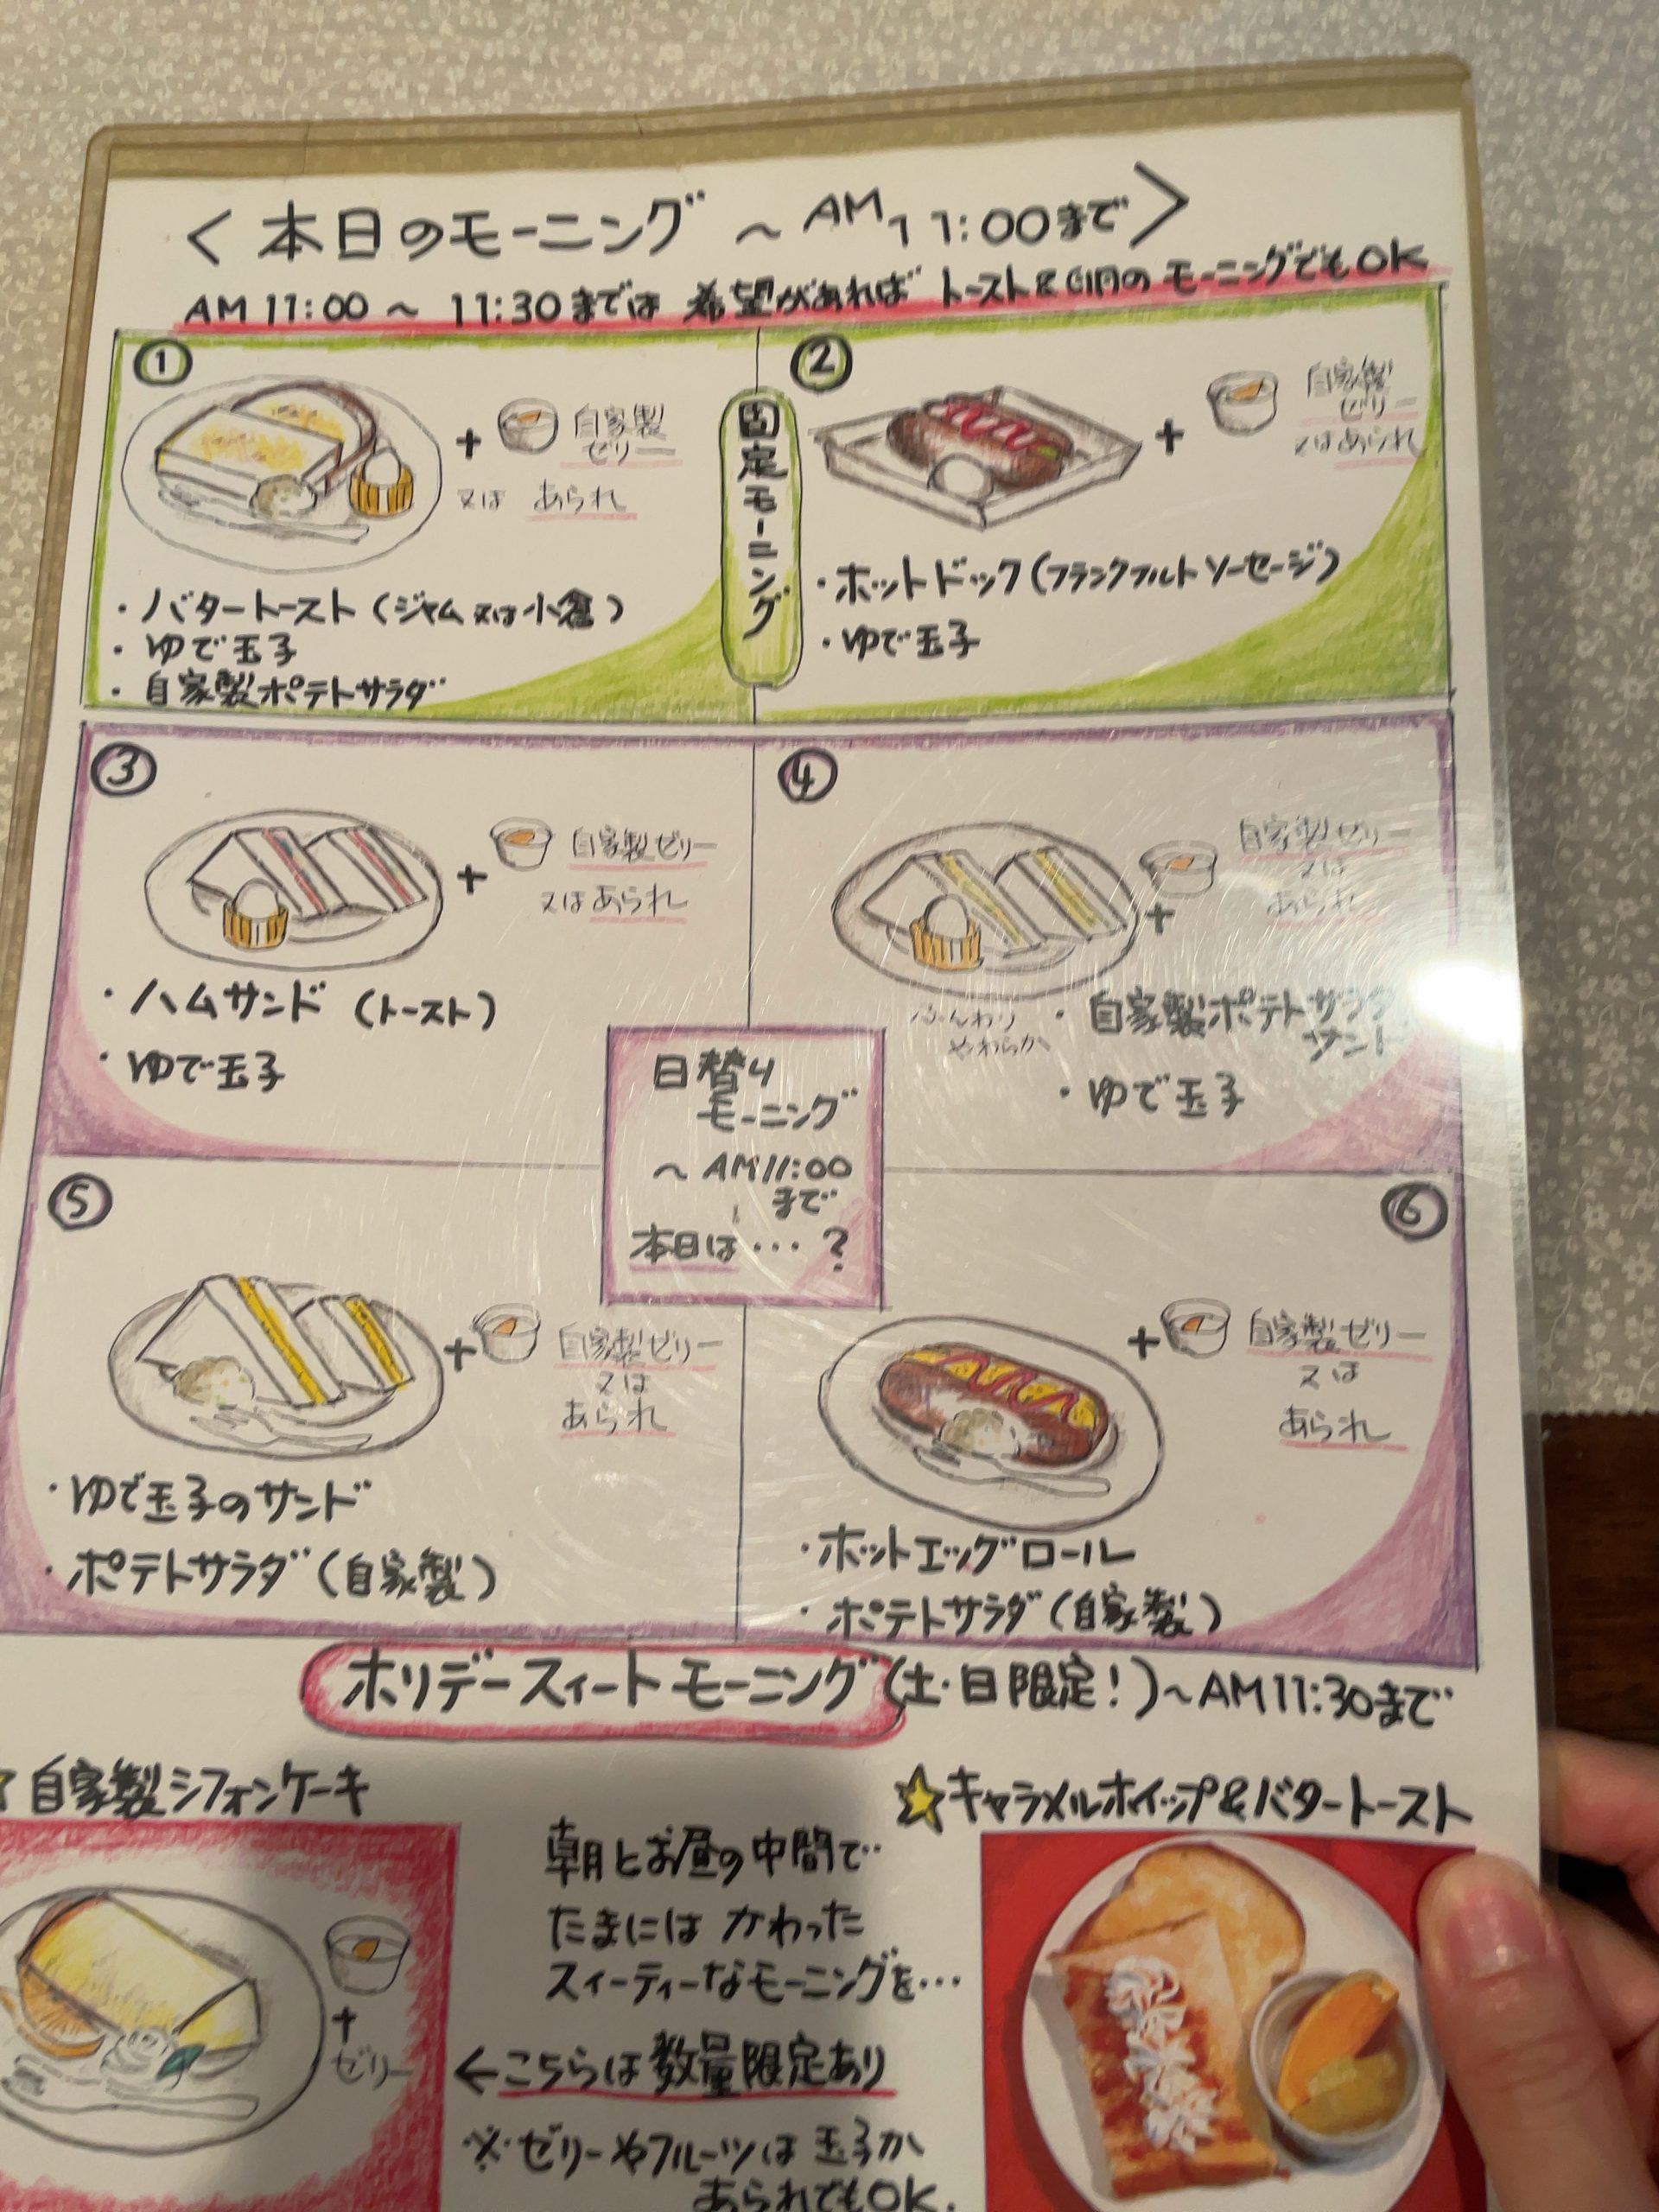 <本日のモーニング ~AM11:00まで>
AM11:00~11:30までは 希望があれば トースト& のモーニングでもOK
固定モーニング
①
+ 自家製
ゼリー
又は あられ
・バタートースト(ジャム又は小倉)
・ゆで玉子
・自家製ポテトサラダ
②
+ 自家製
ゼリー
又はあられ
・ホットドック(フランクフルトソーセージ)
・ゆで玉子
③
+ 自家製ゼリー
又はあられ
・ハムサンド(トースト)
・ゆで玉子
④
+ 自家製ゼリー
又は
あられ
ふんわり
やわらか
・自家製ポテトサラダ
サンド
・ゆで玉子
日替り
モーニング
~AM11:00
まで
本日は…?
⑤
+ 自家製ゼリー
又は
あられ
・ゆで玉子のサンド
・ポテトサラダ(自家製)
⑥
+ 自家製ゼリー
又は
あられ
・ホットエッグロール
・ポテトサラダ(自家製)
ホリデースィートモーニング(土・日限定!)~AM11:30まで
☆自家製シフォンケーキ
+
ゼリー
朝とお昼の中間で
たまには かわった
スィーティーなモーニングを…
←こちらは数量限定あり
※ゼリーやフルーツは玉子か
あられでもOK.
☆キャラメルホイップ&バタートースト